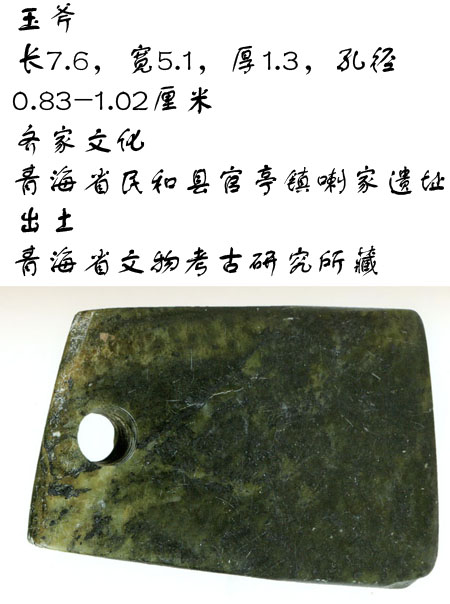 玉斧
长7.6，宽5.1，厚1.3，孔径
0.83-1.02厘米
齐家文化
青海省民和县官亭镇喇家遗址
出土
青海省文物考古研究所藏